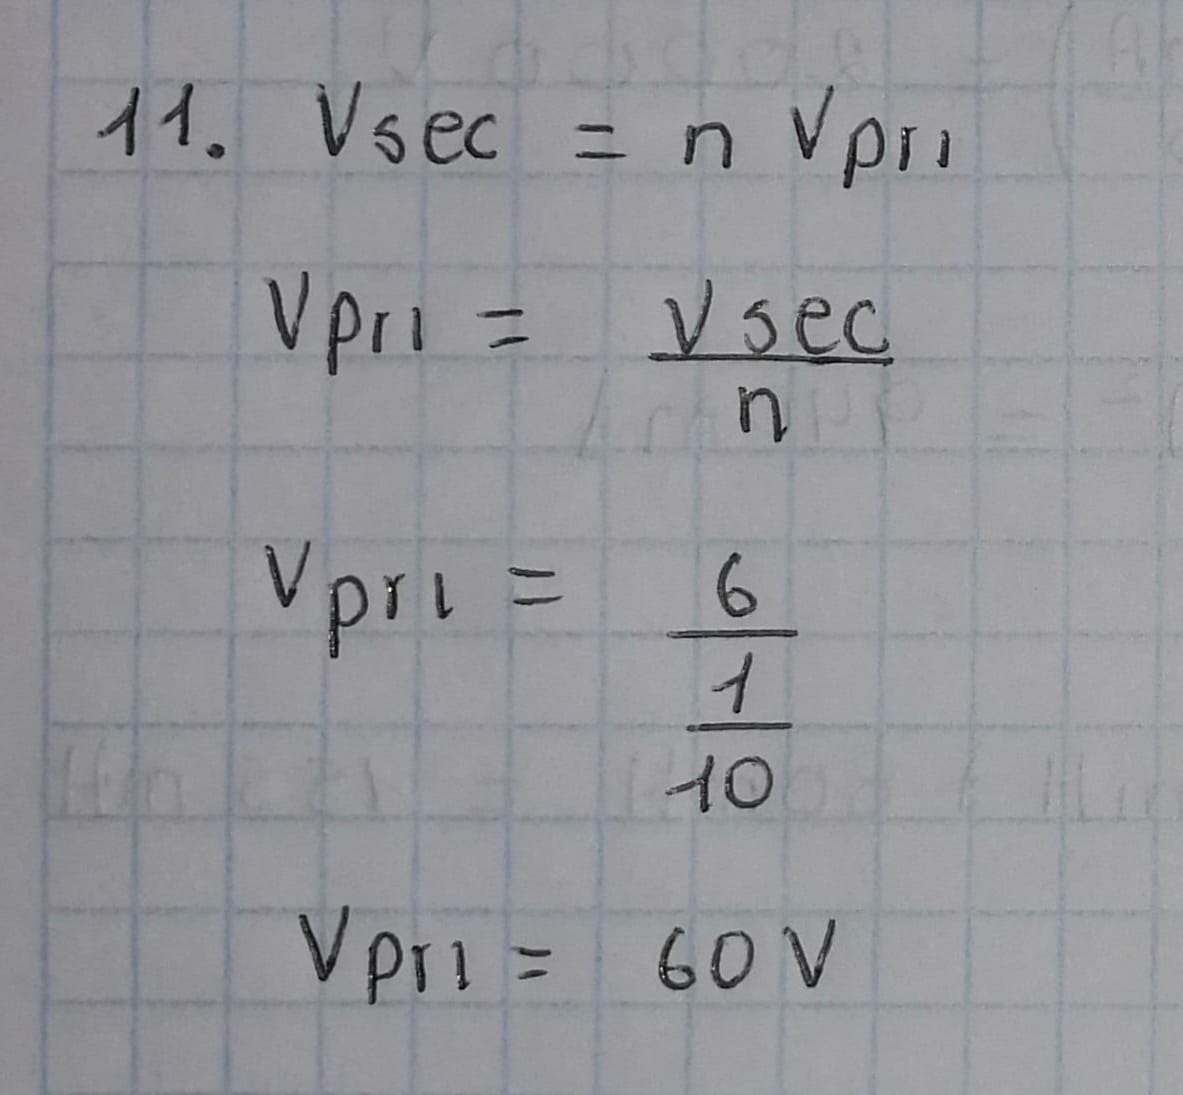 11. Vsec = n Vpri
Vpri = Vsec
n
Vpri = 6
1
10
Vpri = 60 V